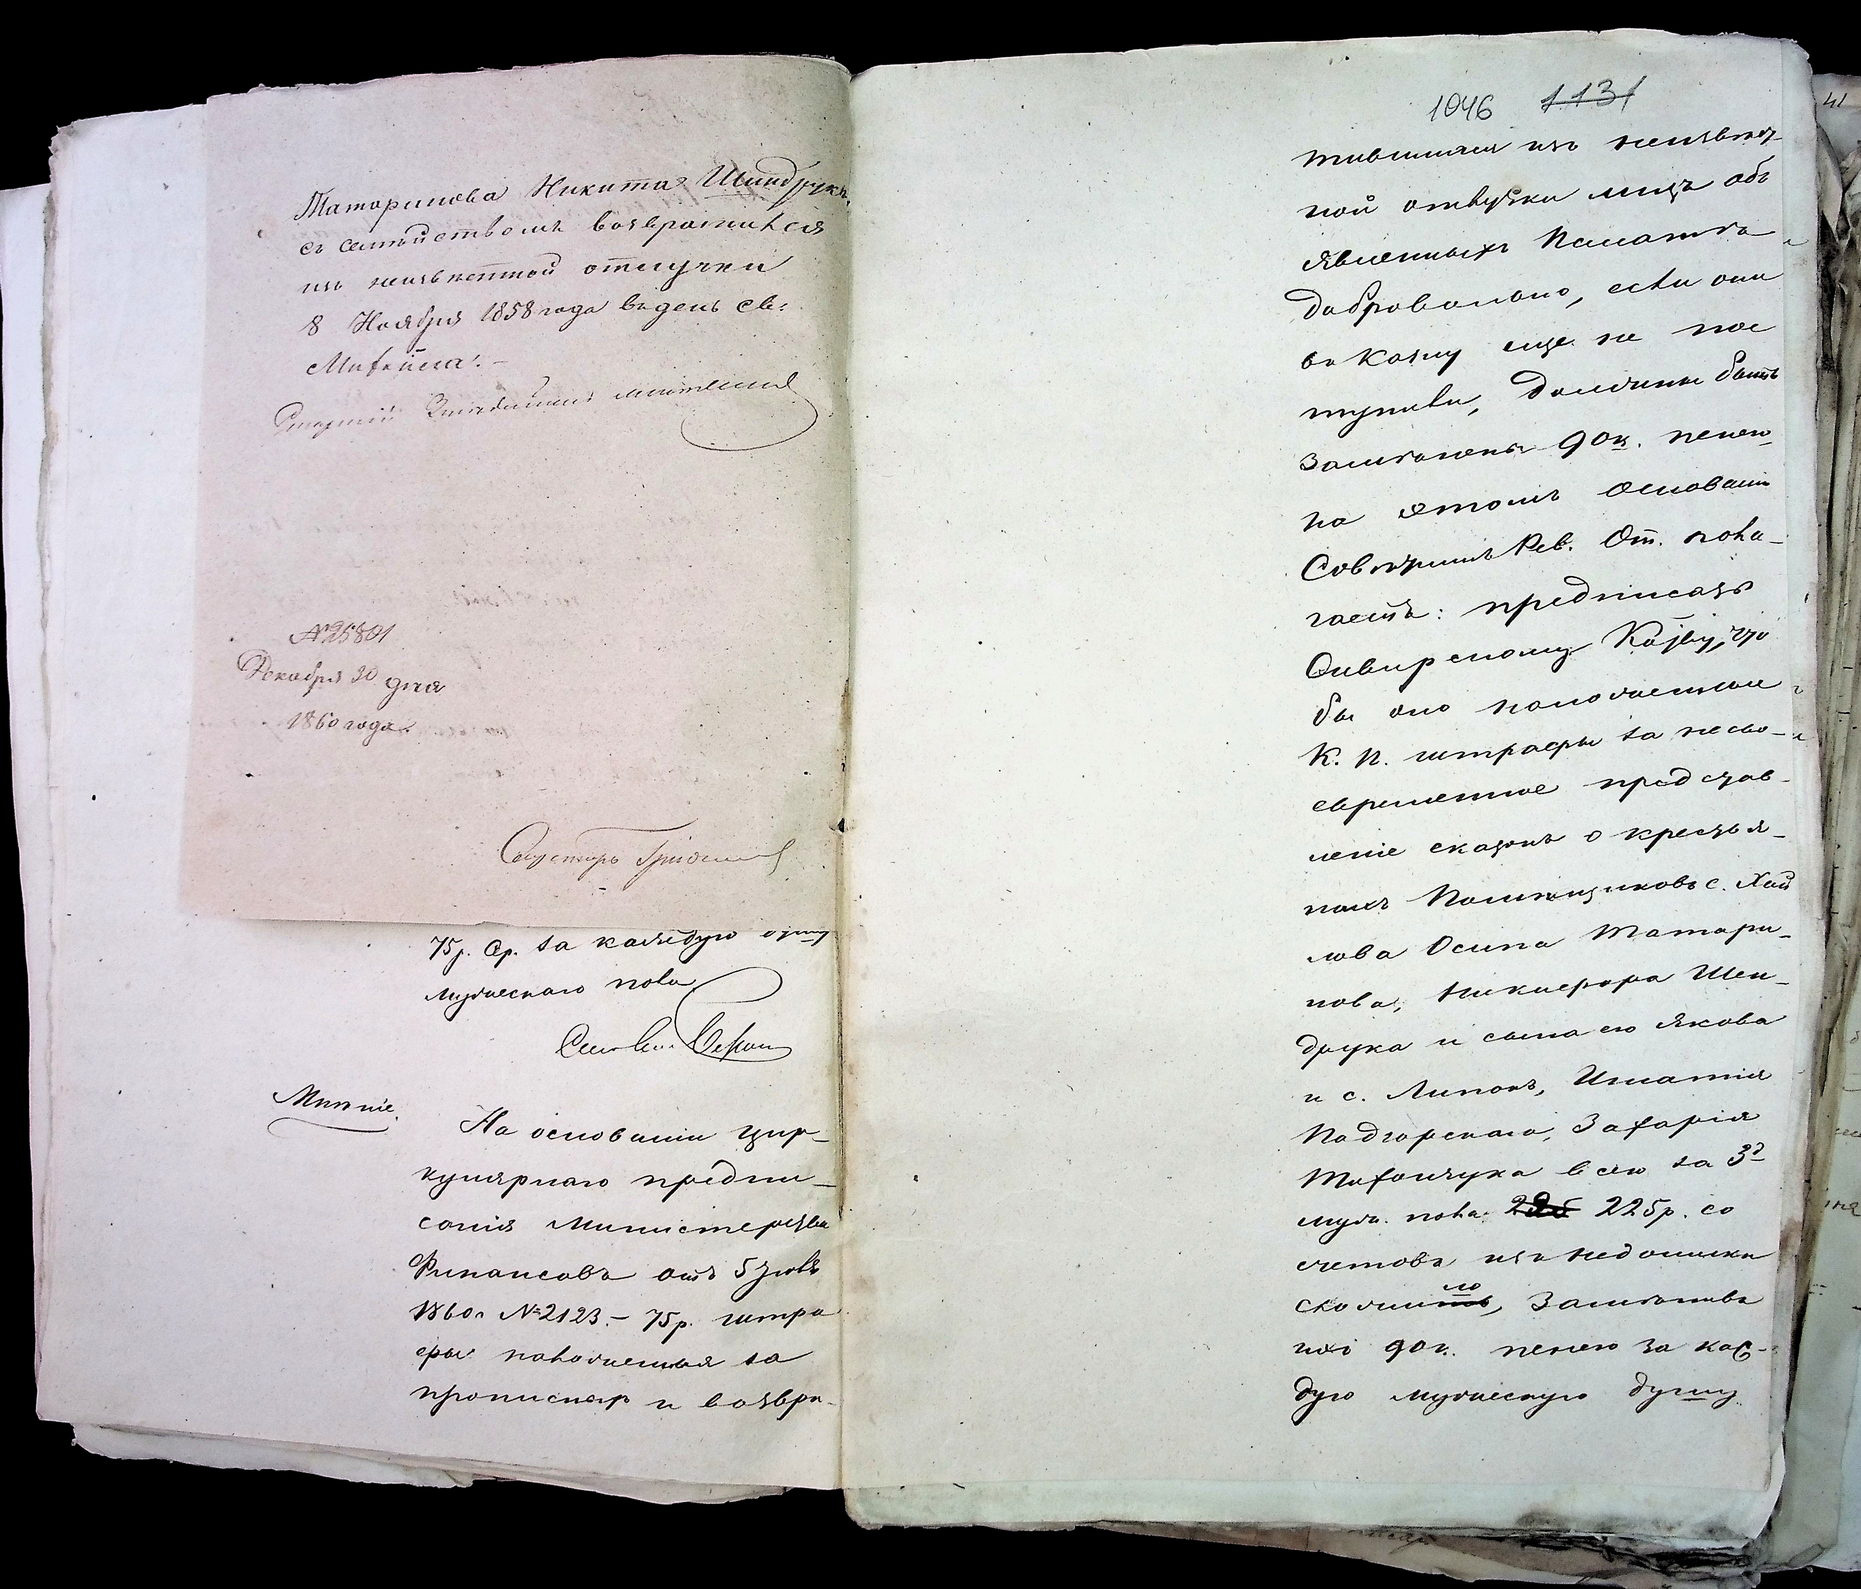 Таторинова Никита Шиндрукъ
съ семѣйствомъ возвратился
изъ неизвѣстной отлучки
8 Ноября 1858 года въ день св:
Михаила. –
Старшій
№ 25801
Декабря 30 дня
1860 года.
75 р. Ср. за каждую душу
мужескаго пола
Мнѣніе.
На основаніи цир-
кулярнаго предпи-
санія Министерства
Финансовъ отъ 5
1860 г № 2123. – 75 р. штра
фы положенныя за
прописныхъ и возвра-
1046 1131
тившихся изъ неизвѣст-
ной отлучки лицъ объ
явленныхъ Палатѣ
добровольно, если они
въ казну еще не пос
тупили, должны быть
замѣнены 90 к. пенею
на этомъ основаніи
Совѣтникъ Рев. От. пола-
гаетъ: предписать
Сквирскому Каз-ву, что
бы оно положенные
К. П. штрафы за несво-
евременное представ-
леніе сказокъ о крестья-
нахъ Помѣщиковъ с.
Осипа Татари-
нова, Никифора Шен-
друка и сына его Якова
и с. Липокъ, Игнатія
Подгорскаго, Захарія
всего за 3 д
муж. пола 225 225 р. со
счетовъ изъ недоимки
сложило, замѣнивъ
ихъ 90 к. пенею за каж-
дую мужескую душу